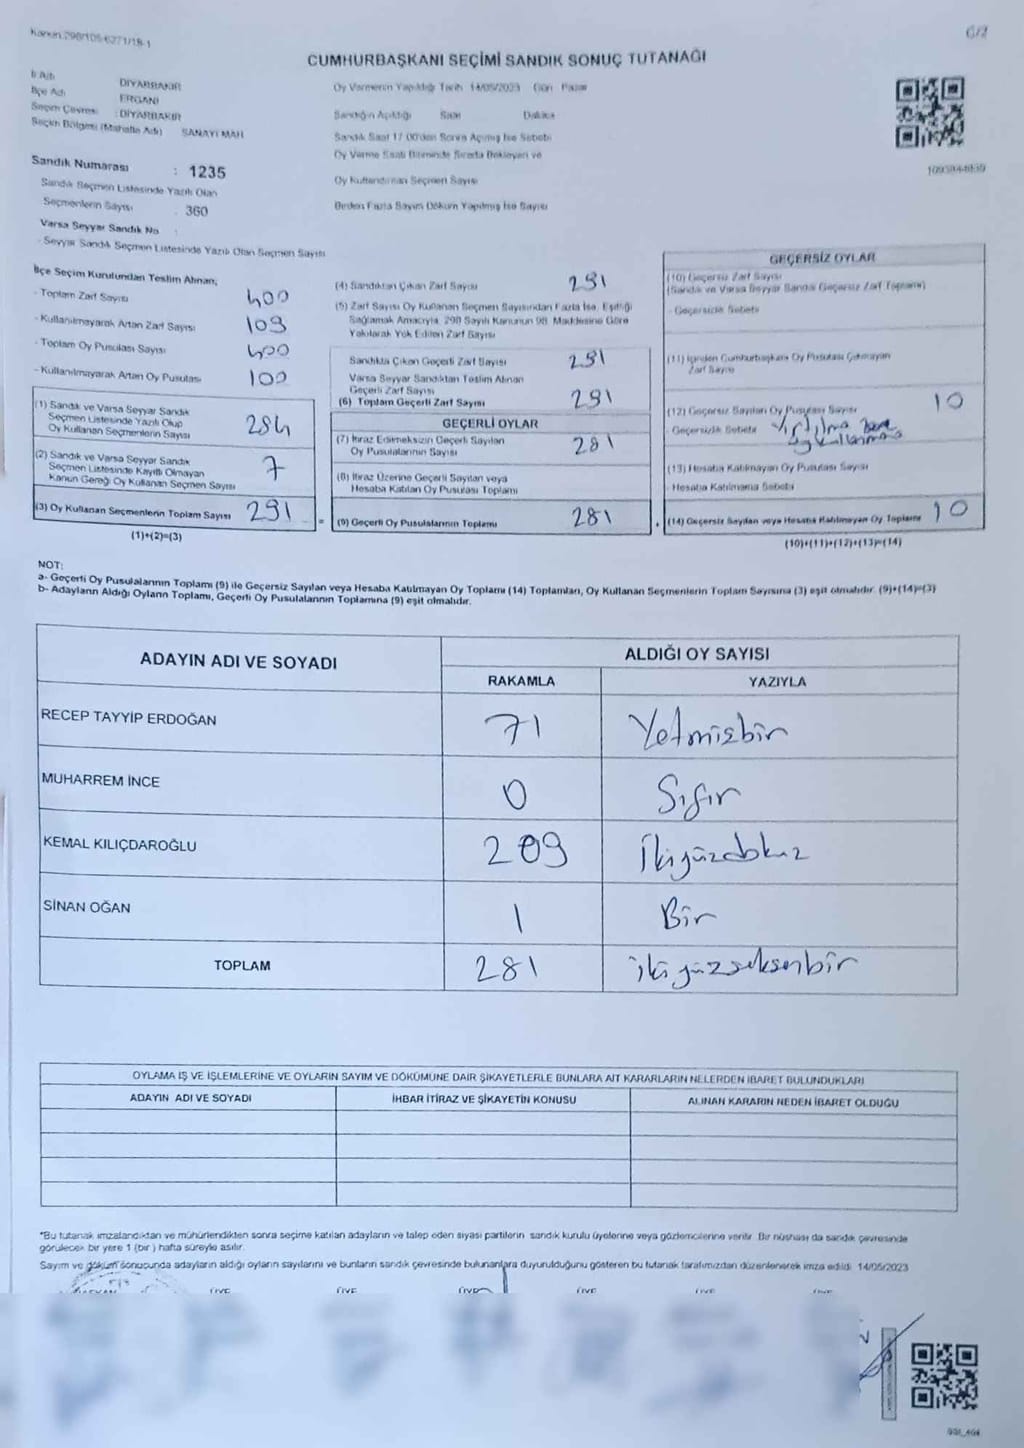 Kanun:298/105-6271/18-1
C/2
CUMHURBAŞKANI SEÇİMİ SANDIK SONUÇ TUTANAĞI
İl Adı DİYARBAKIR
İlçe Adı ERGANİ
Seçim Çevresi : DİYARBAKIR
Seçim Bölgesi (Mahalle Adı) SANAYİ MAH
Sandık Numarası : 1235
Sandık Seçmen Listesinde Yazılı Olan
Seçmenlerin Sayısı : 360
Varsa Seyyar Sandık No :
- Seyyar Sandık Seçmen Listesinde Yazılı Olan Seçmen Sayısı
Oy Vermenin Yapıldığı Tarih 14/05/2023 Gün Pazar
Sandığın Açıldığı Saat Dakika
Sandık Saat 17:00'den Sonra Açılmış İse Sebebi
Oy Verme Saati Bitiminde Sırada Bekleyen ve
Oy Kullandırılan Seçmen Sayısı
Birden Fazla Sayım Döküm Yapılmış İse Sayısı
İlçe Seçim Kurulundan Teslim Alınan;
- Toplam Zarf Sayısı 400
- Kullanılmayarak Artan Zarf Sayısı 109
- Toplam Oy Pusulası Sayısı 400
- Kullanılmayarak Artan Oy Pusulası 109
(1) Sandık ve Varsa Seyyar Sandık
Seçmen Listesinde Yazılı Olup
Oy Kullanan Seçmenlerin Sayısı 284
(2) Sandık ve Varsa Seyyar Sandık
Seçmen Listesinde Kayıtlı Olmayan
Kanun Gereği Oy Kullanan Seçmen Sayısı 7
(3) Oy Kullanan Seçmenlerin Toplam Sayısı 291
(1)+(2)=(3)
(4) Sandıktan Çıkan Zarf Sayısı 291
(5) Zarf Sayısı Oy Kullanan Seçmen Sayısından Fazla İse, Eşitliği
Sağlamak Amacıyla, 298 Sayılı Kanunun 98. Maddesine Göre
Yakılarak Yok Edilen Zarf Sayısı
Sandıkta Çıkan Geçerli Zarf Sayısı 291
Varsa Seyyar Sandıktan Teslim Alınan
Geçerli Zarf Sayısı
(6) Toplam Geçerli Zarf Sayısı 291
GEÇERLİ OYLAR
(7) İtiraz Edilmeksizin Geçerli Sayılan
Oy Pusulalarının Sayısı 281
(8) İtiraz Üzerine Geçerli Sayılan veya
Hesaba Katılan Oy Pusulası Toplamı
(9) Geçerli Oy Pusulalarının Toplamı 281
GEÇERSİZ OYLAR
(10) Geçersiz Zarf Sayısı
(Sandık ve Varsa Seyyar Sandık Geçersiz Zarf Toplamı)
- Geçersizlik Sebebi
(11) İçinden Cumhurbaşkanı Oy Pusulası Çıkmayan
Zarf Sayısı
(12) Geçersiz Sayılan Oy Pusulası Sayısı 10
- Geçersizlik Sebebi Yırtılma
(13) Hesaba Katılmayan Oy Pusulası Sayısı
- Hesaba Katılmama Sebebi
(14) Geçersiz Sayılan veya Hesaba Katılmayan Oy Toplamı 10
(10)+(11)+(12)+(13)=(14)
NOT:
a- Geçerli Oy Pusulalarının Toplamı (9) ile Geçersiz Sayılan veya Hesaba Katılmayan Oy Toplamı (14) Toplamları, Oy Kullanan Seçmenlerin Toplam Sayısına (3) eşit olmalıdır. (9)+(14)=(3)
b- Adayların Aldığı Oyların Toplamı, Geçerli Oy Pusulalarının Toplamına (9) eşit olmalıdır.
ADAYIN ADI VE SOYADI
ALDIĞI OY SAYISI
RAKAMLA YAZIYLA
RECEP TAYYİP ERDOĞAN 71 Yetmişbir
MUHARREM İNCE 0 Sıfır
KEMAL KILIÇDAROĞLU 209 ikiyüzdokuz
SİNAN OĞAN 1 Bir
TOPLAM 281 ikiyüzseksenbir
OYLAMA İŞ VE İŞLEMLERİNE VE OYLARIN SAYIM VE DÖKÜMÜNE DAİR ŞİKAYETLERLE BUNLARA AİT KARARLARIN NELERDEN İBARET BULUNDUKLARI
ADAYIN ADI VE SOYADI İHBAR İTİRAZ VE ŞİKAYETİN KONUSU ALINAN KARARIN NEDEN İBARET OLDUĞU
"Bu tutanak imzalandıktan ve mühürlendikten sonra seçime katılan adayların ve talep eden siyasi partilerin sandık kurulu üyelerine veya gözlemcilerine verilir. Bir nüshası da sandık çevresinde
görülecek bir yere 1 (bir) hafta süreyle asılır.
Sayım ve döküm sonucunda adayların aldığı oyların sayılarını ve bunların sandık çevresinde bulunanlara duyurulduğunu gösteren bu tutanak tarafımızdan düzenlenerek imza edildi. 14/05/2023
ÜYE ÜYE ÜYE ÜYE ÜYE ÜYE